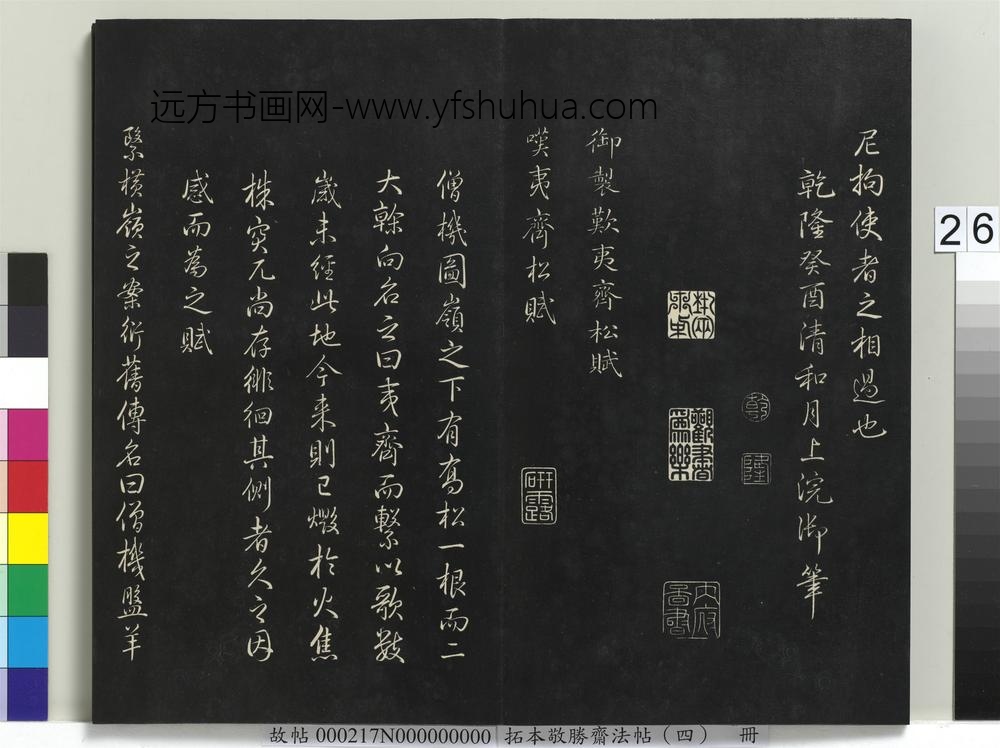 远方书画网-www.yfshuhua.com
尼拘使者之相過也
乾隆癸酉清和月上浣御筆
乾
隆
觀書為樂
內府書
御製歎夷齊松賦
嘆夷齊松賦
研露
僧機圖嶺之下有喬松一根而二
大榦向名之曰夷齊而繫以歌數
歲未經此地今来則已燬於火焦
株突兀尚存徘徊其側者久之因
感而為之賦
繄橫嶺之案衍舊傳名曰僧機盤羊
26
故帖 000217N000000000 拓本敬勝齋法帖（四） 冊